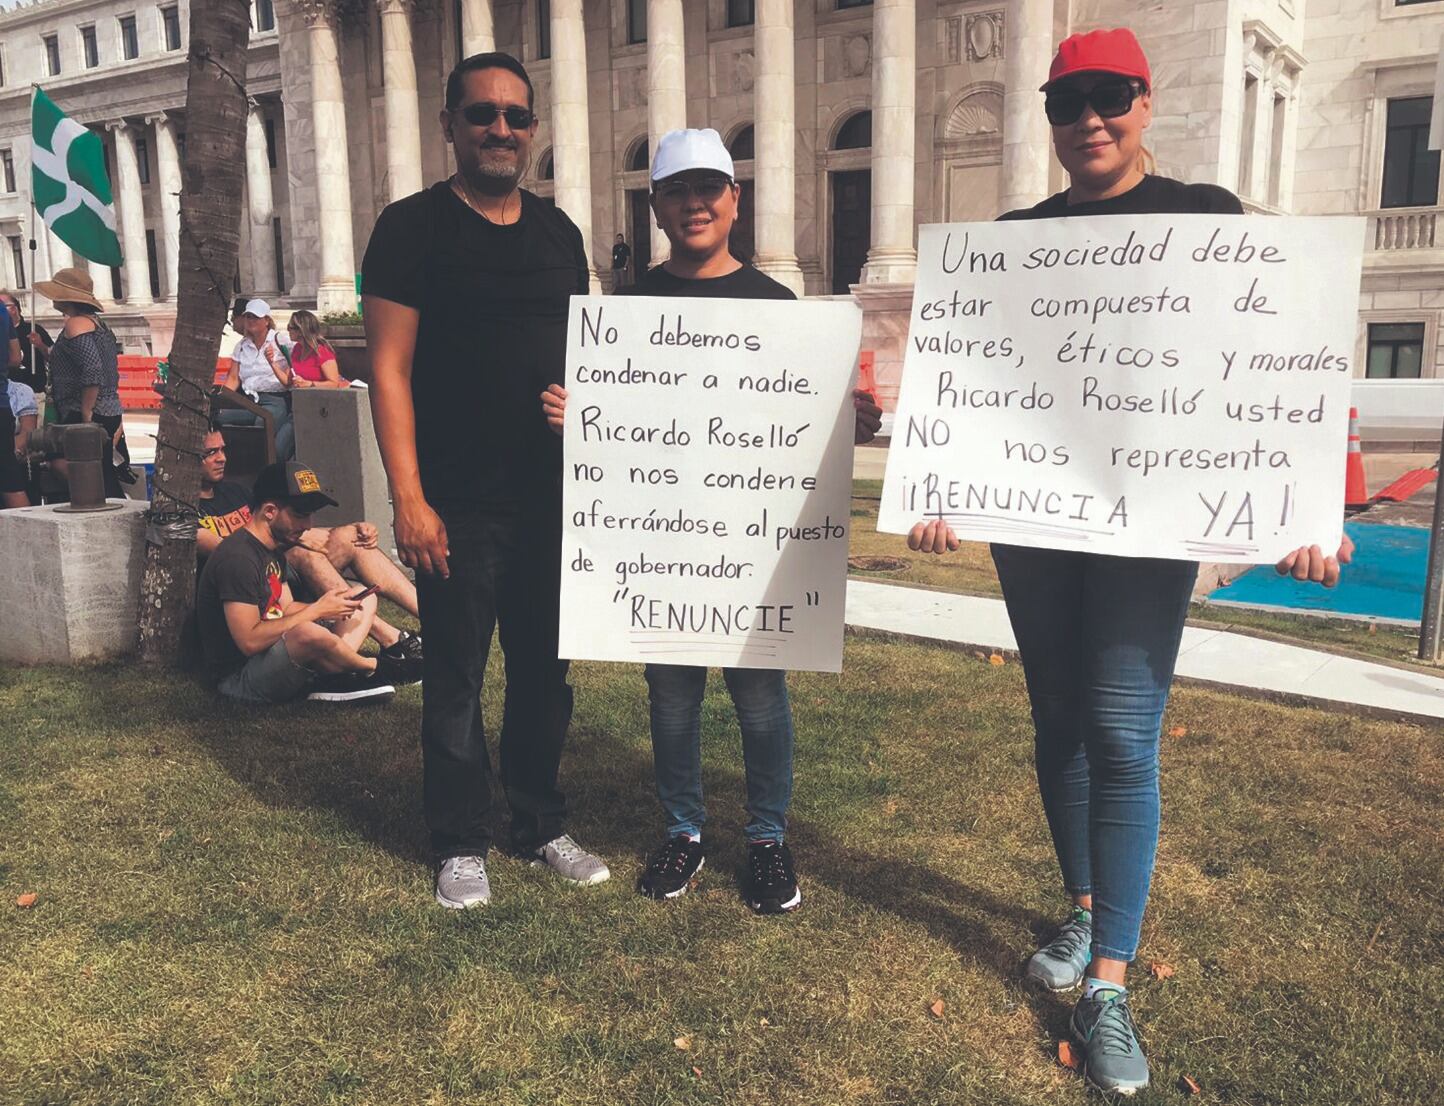 No debemos
condenar a nadie.
Ricardo Roselló
no nos condene
aferrándose al puesto
de gobernador.
"RENUNCIE"
Una sociedad debe
estar compuesta de
valores, éticos y morales
Ricardo Roselló usted
NO nos representa
¡¡RENUNCIA YA!